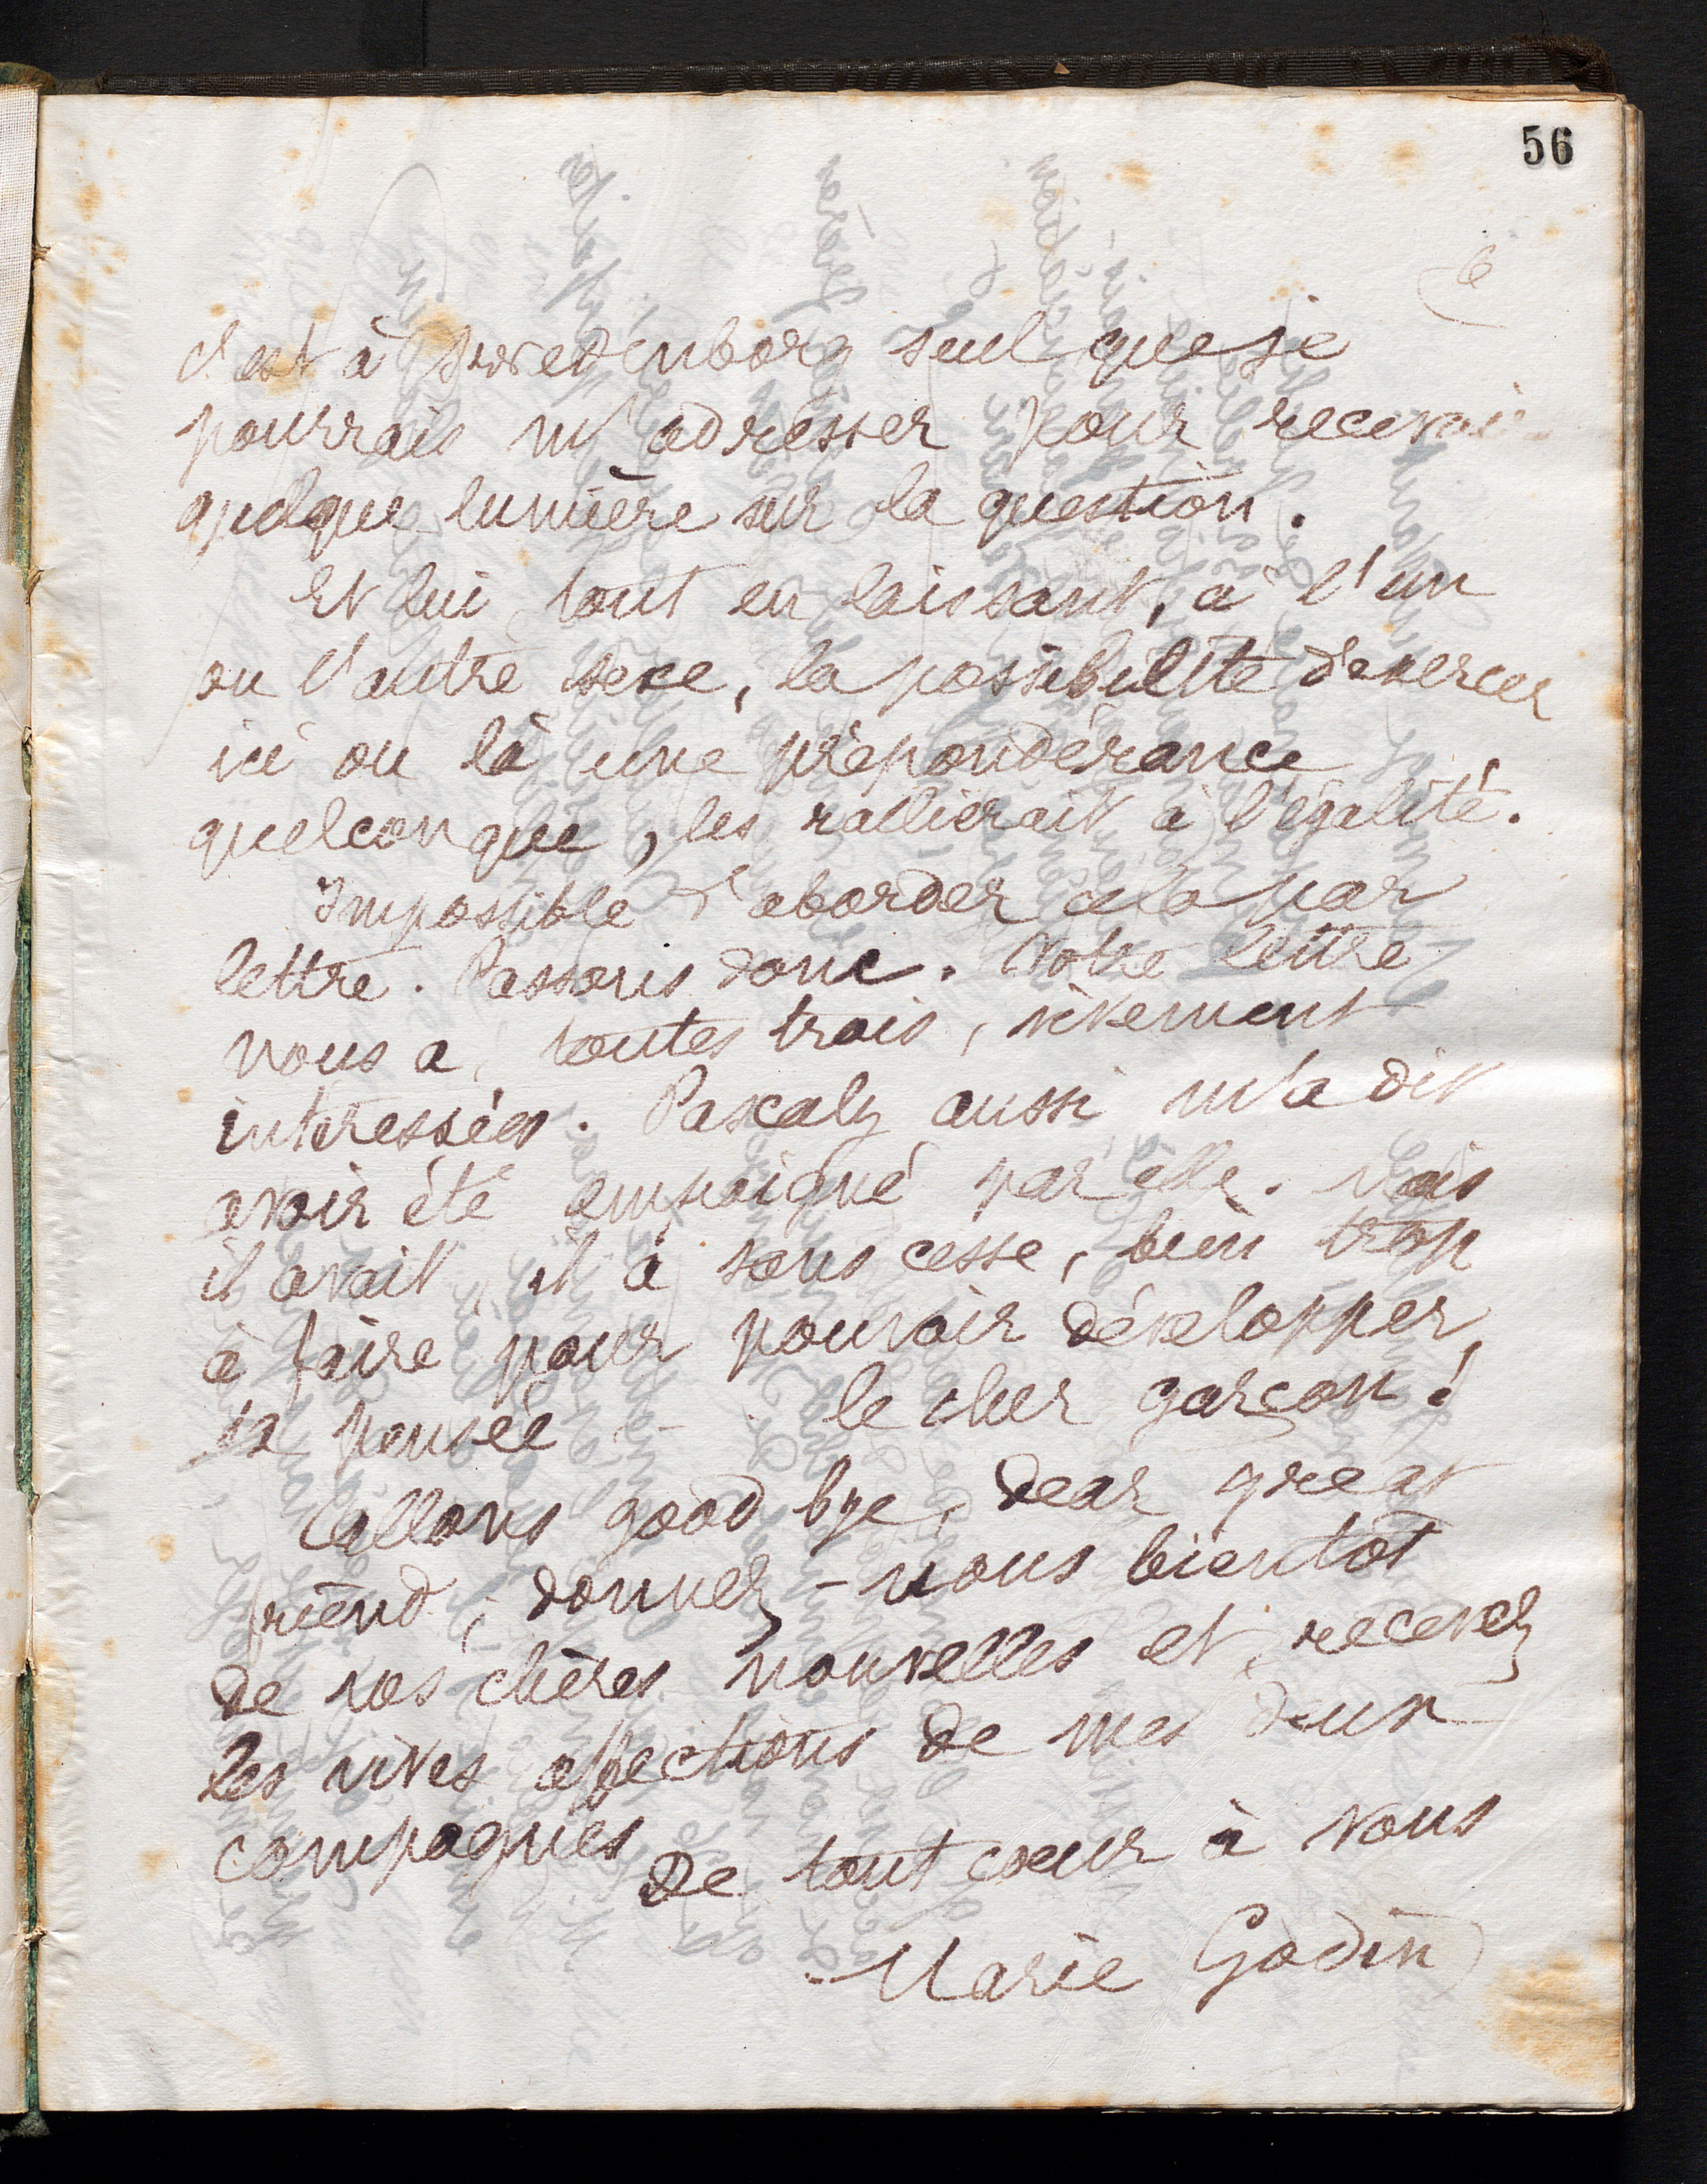 56
6
c'est à Swedenborg seul que je
pourrais m'adresser pour recevoir
quelque lumière sur la question.
Et lui, tout en laissant, à l'un
ou l'autre sexe, la possibilité d'exercer
ici ou là une prépondérance
quelconque, les rallierait à l'égalité.
Impossible d'aborder cela par
lettre. Passons donc. Votre lettre
nous a, toutes trois, vivement
intéressées. Pascaly aussi m'a dit
avoir été empoigné par elle. Mais
il avait, il a sans cesse, bien trop
à faire pour pouvoir développer
sa pensée - le cher garçon!
Allons good bye, dear great
friend, donnez-nous bientôt
de vos chères nouvelles et recevez
les vives affections de mes deux
compagnes
De tout coeur à vous
Marie Godin